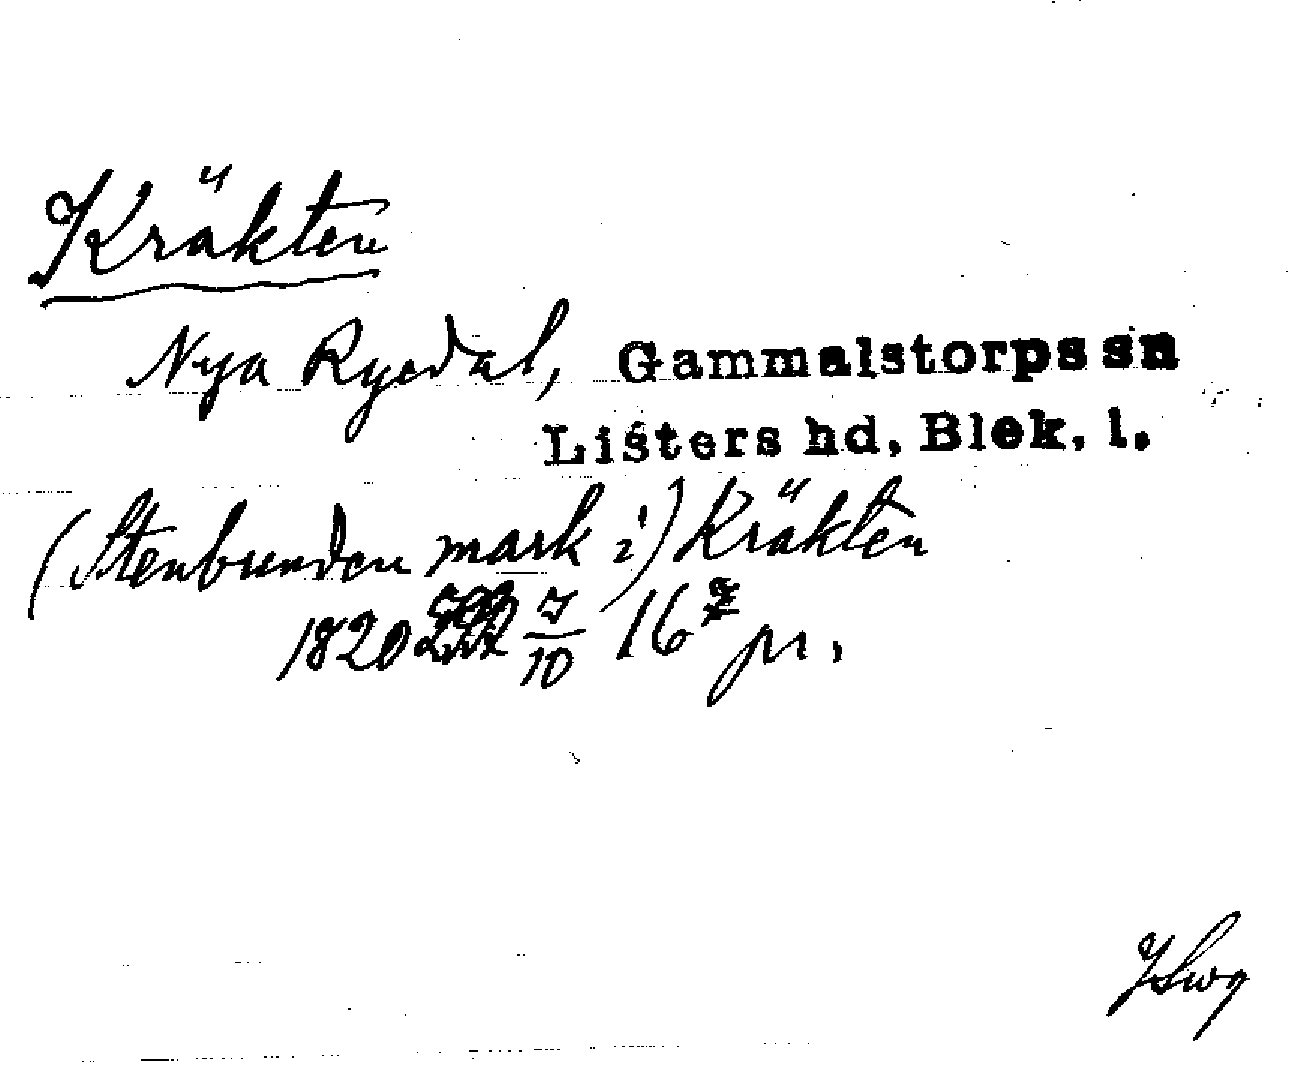 Kräkten
Nya Ryedal, Gammalstorps sn
Listers hd. Blek. l.
(Stenbunden mark i) Kräkten
1820 7/10 16 pr.